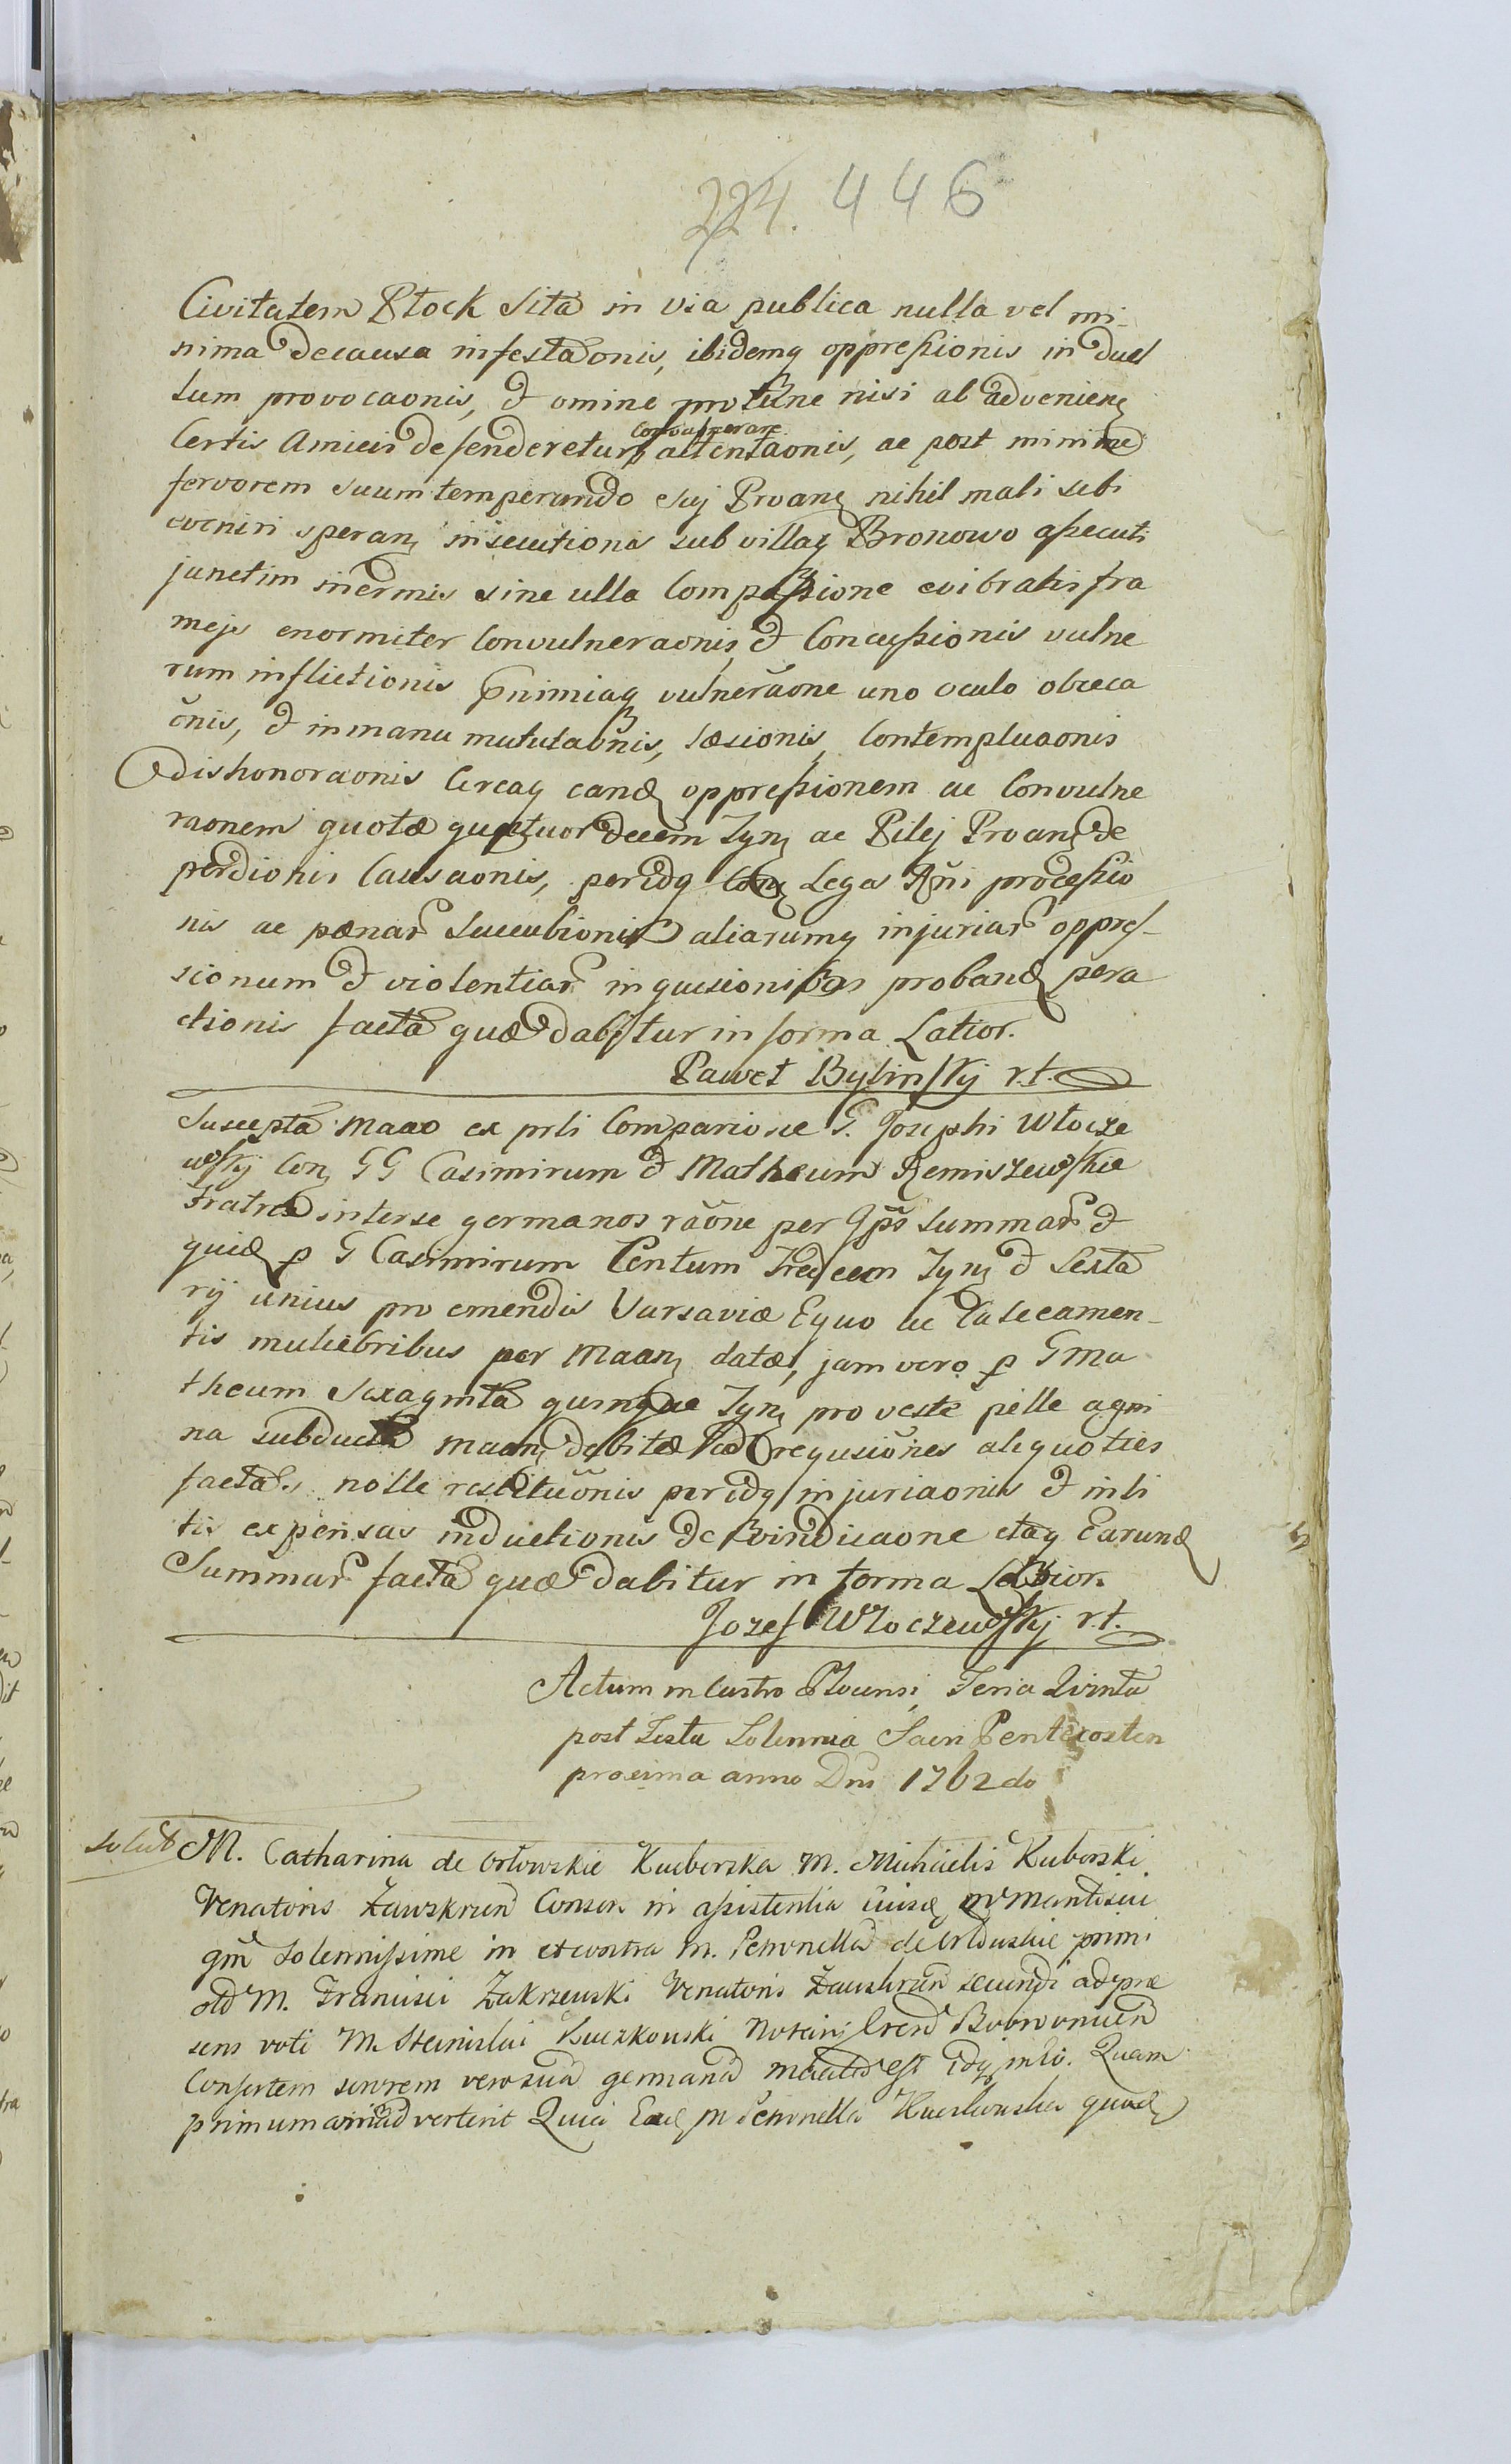 224. 446
Civitatem Płock sita in via publica nulla vel mi-
nima de causa infestaonis, ibidemq oppressionis in duel
lum provocaonis, et omine protune nisi ab advenien
Certis Amicis defenderetur convulnerare attentaonis, ac post minime
fervorem suum temperando suj Proan nihil mali sibi
eveniri speran insecutionis sub villaq Bronowo assecuti
junctim inermis sine ulla Compassione evibratis fra
mejs enormiter Convulneraonis, et Concussionis vulne
rum inflictionis nimiaq vulneraone uno oculo obceca
onis, et in manu mutulaonis, læsionis, Contempluaonis
et dishonoraonis Circaq eand oppressionem ac Convulne
raonem quotæ quatuor decem Tyn ac Pilej Proan de
perdionis Causaonis, per idq Con Leges Rni processio
nis ac pænar succubionis aliarumq injuriar oppres-
sionum et violentiar inquisionibus proband pera
ctionis facta quæ dabitur in forma Latior.
Paweł Byliński r.t.
Suscepta maao ex prli Comparione G. Josephi Włocze
wskj Con GG Casimirum et Matheum Remiszewskie
fratres inter se germanos raone per Ipss summar et
quid p G Casimirum Centum Tredecem Tyn et Sexta
rij unius pro emendis Varsaviæ Equo ac Calecamen-
tis muliebribus per Maan datæ, jam vero p G Ma
theum Sexaginta quinque Tyn pro veste pelle agni
na subducta maan debitæ ad requsiones aliquoties
factas nolle restituonis per idq injuriaonis et in li
tis expensas inductionis de vindicaone etaq Earund
Summar facta quæ dabitur in forma Latior.
Jozef Włoczewskj r.t.
Actum in Castro Plocensi, Feria Quinta
post Festa Solennia Sacri Pentecosten
proxima anno Dni 1762do
Solut M. Catharina de Orłowskie Kuborska M. Michaelis Kuborski
Venatoris Zawskrzen Conson in assistentia ejusd M mariti sui
qm Solennissime in et contra M. Petronella de Orłowskie primi
old M. Francisci Zakrzewski Venatoris Zawskrzen secundi ad præ
sens voti M. Stanislai Kuczkowski Notarij Cren Bobrownicen
Consortem sororem vero sua germana maatd est idq in eo. Quam
primum animadverterit Quia Ead M Petronella Kuczkowska quad